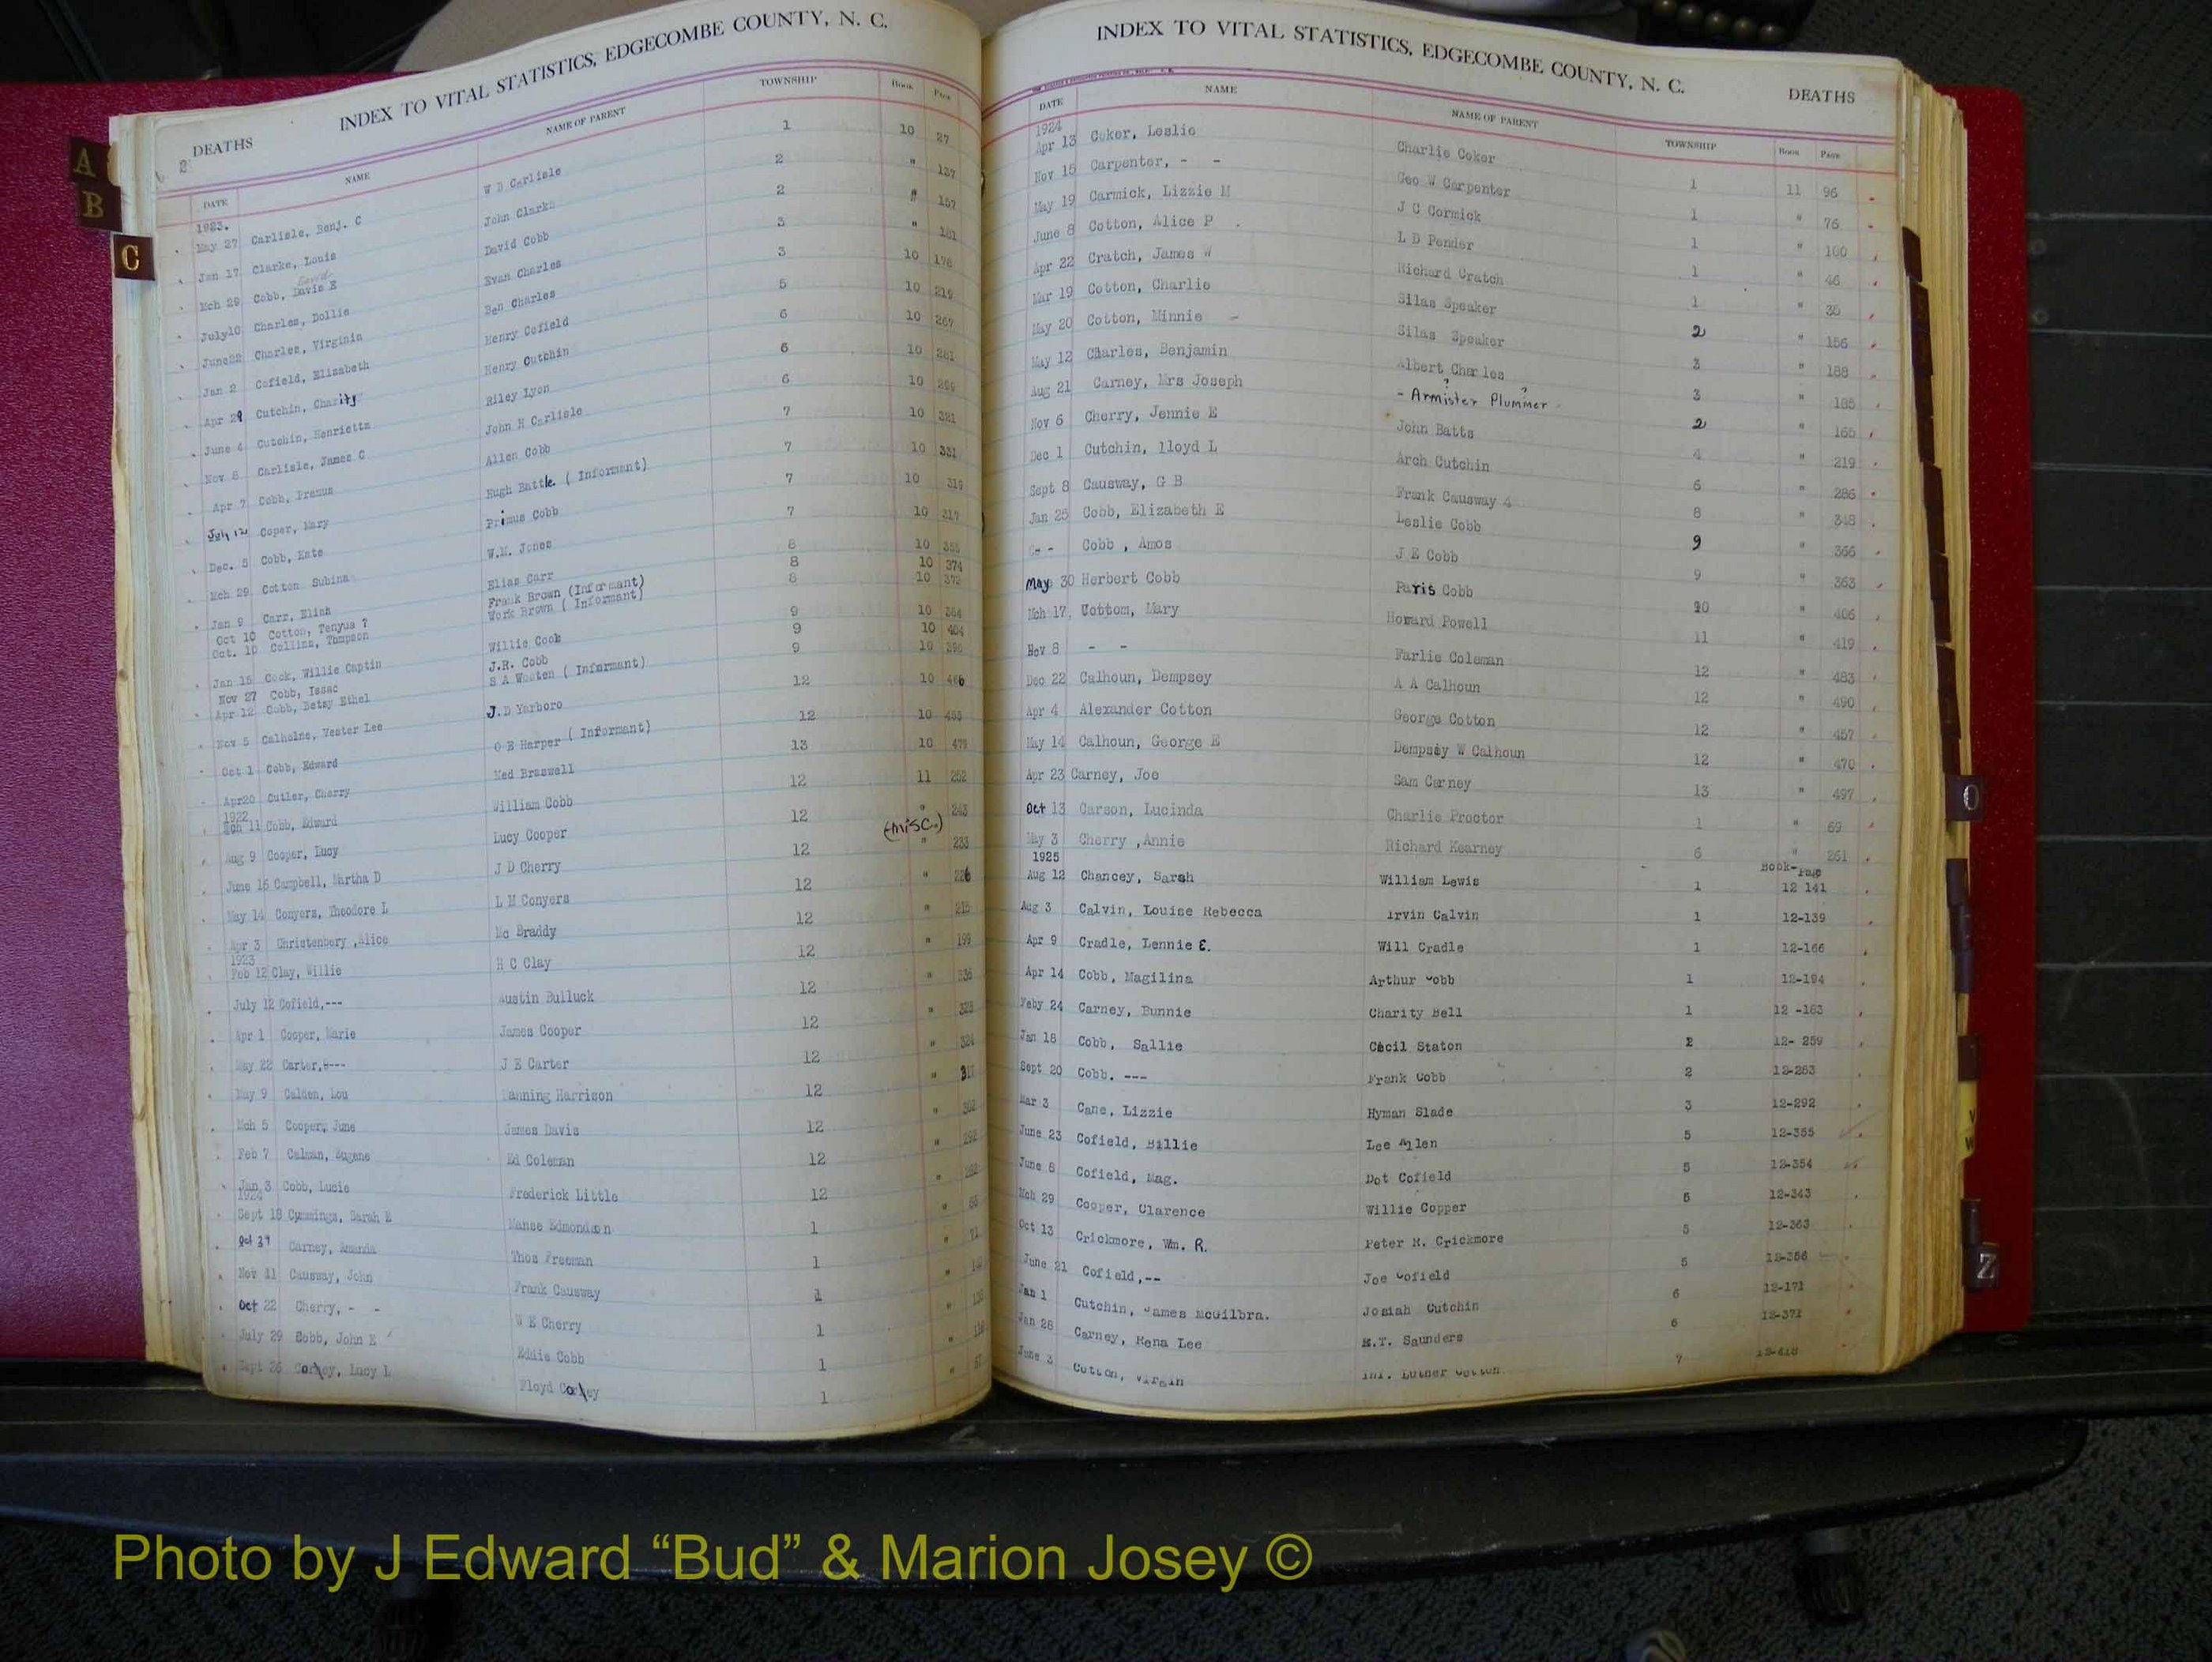 INDEX TO VITAL STATISTICS, EDGECOMBE COUNTY, N. C.
DEATHS
2
DATE NAME NAME OF PARENT TOWNSHIP Book Page
1923.
May 27 Carlisle, Benj. C W B Carlisle 1 10 27
Jan 17 Clarke, Louis John Clarke 2 " 137
Mch 29 Cobb, Davis E David Cobb 2 " 157
July10 Charles, Dollie Evan Charles 3 " 181
June22 Charles, Virginia Ben Charles 3 10 178
Jan 2 Cofield, Elizabeth Henry Cofield 5 10 219
Apr 29 Cutchin, Charity Henry Cutchin 6 10 267
June 4 Cutchin, Henrietta Riley Lyon 6 10 281
Nov 8 Carlisle, James C John H Carlisle 6 10
Apr 7 Cobb, Premus Allen Cobb 7 10 321
July 12 Coper, Mary Hugh Battle. ( Informant) 7 10 331
Dec. 5 Cobb, Kate Primus Cobb 7 10 319
Mch 29 Cotton Subina W.M. Jones 7 10 317
Jan 9 Carr, Elish Elias Carr 8 10 355
Oct 10 Cotton, Tenyus ? Frank Brown (Informant) 8 10 374
Oct. 10 Collins, Thmpson Work Brown ( Informant) 8 10 372
Jan 15 Cook, Willie Captin Willie Cook 9 10 384
Nov 27 Cobb, Issac J.R. Cobb 9 10 404
Apr 12 Cobb, Betsy Ethel S A Wooten ( Informant) 9 10
Nov 5 Calholne, Vester Lee J.D Yarboro 12 10 466
Oct 1 Cobb, Edward O B Harper ( Informant) 12 10 455
Apr20 Cutler, Cherry Ned Braswell 13 10 479
1922
Mch 11 Cobb, Edward William Cobb 12 11 252
Aug 9 Cooper, Lucy Lucy Cooper 12 " 243
(misc.)
June 16 Campbell, Martha D J D Cherry 12 " 233
May 14 Conyers, Theodore L L M Conyers 12 " 226
Apr 3 Christenbery ,Alice Mc Braddy 12 " 215
1923
Feb 12 Clay, Willie H C Clay 12 " 199
July 12 Cofield,--- Austin Bulluck 12 " 336
Apr 1 Cooper, Marie James Cooper 12 " 328
May 22 Carter,---- J E Carter 12 " 324
May 9 Calden, Lou Manning Harrison 12 " 317
Mch 5 Cooper, June James Davis 12 " 302
Feb 7 Calman, Eugene Ed Coleman 12 " 292
Jan 3 Cobb, Lucie Frederick Little 12 "
1924
Sept 18 Cummings, Sarah E Manse Edmondson 1 " 65
Oct 27 Carney, Amanda Thos Freeman 1 " 71
Nov 11 Causway, John Frank Causway 1 "
Oct 22 Cherry, - - W E Cherry 1 "
July 29 Cobb, John E Eddie Cobb 1 "
Sept 26 Lucy L Floyd 1 " 67
INDEX TO VITAL STATISTICS, EDGECOMBE COUNTY, N. C.
DEATHS
DATE NAME NAME OF PARENT TOWNSHIP Book Page
1924
Apr 13 Coker, Leslie Charlie Coker 1 11 96
Nov 15 Carpenter, - - Geo W Carpenter 1 " 76
May 19 Carmick, Lizzie M J C Cormick 1 " 100
June 8 Cotton, Alice P . L D Pender 1 " 46
Apr 22 Cratch, James W Richard Cratch 1 " 35
Mar 19 Cotton, Charlie Silas Speaker 2 " 156
May 20 Cotton, Minnie - Silas Speaker 3 " 188
May 12 Charles, Benjamin Albert Charles 3 " 185
Aug 21 Carney, Mrs Joseph - Armister ? Plummer ? 2 " 165
Nov 6 Cherry, Jennie E John Batts 4 " 219
Dec 1 Cutchin, lloyd L Arch Cutchin 6 " 286
Sept 8 Causway, G B Frank Causway 4 8 " 348
Jan 25 Cobb, Elizabeth E Leslie Cobb 9 " 366
Cobb , Amos J E Cobb 9 " 363
May 30 Herbert Cobb Paris Cobb 10 " 406
Mch 17, Cottom, Mary Howard Powell 11 " 419
Nov 8 - - Farlie Coleman 12 " 483
Dec 22 Calhoun, Dempsey A A Calhoun 12 " 490
Apr 4 Alexander Cotton George Cotton 12 " 457
May 14 Calhoun, George E Dempsey W Calhoun 12 " 470
Apr 23 Carney, Joe Sam Carney 13 " 497
Oct 13 Carson, Lucinda Charlie Proctor 1 " 69
May 3 Cherry ,Annie Richard Kearney 6 " 261
1925
Book-Page
Aug 12 Chancey, Sarah William Lewis 1 12 141
Aug 3 Calvin, Louise Rebecca Irvin Calvin 1 12-139
Apr 9 Cradle, Lennie E. Will Cradle 1 12-166
Apr 14 Cobb, Magilina Arthur Cobb 1 12-194
Feby 24 Carney, Bunnie Charity Bell 1 12 -163
Jan 18 Cobb, Sallie Cecil Staton 2 12- 259
Sept 20 Cobb. --- Frank Cobb 2 12-263
Mar 3 Cane, Lizzie Hyman Slade 3 12-292
June 23 Cofield, Billie Lee Allen 5 12-365
June 8 Cofield, Mag. Dot Cofield 5 12-354
Mch 29 Cooper, Clarence Willie Copper 5 12-343
Oct 13 Crickmore, Wm. R. Peter R. Crickmore 5 12-363
June 21 Cofield,-- Joe Cofield 5 12-356
Jan 1 Cutchin, James McGilbra. Josiah Cutchin 6 12-171
Jan 28 Carney, Rena Lee E.T. Saunders 6 12-371
June 3 Cotton, Virgin Luther Cotton 7
A
B
C
O
V
W
Z
Photo by J Edward “Bud” & Marion Josey ©